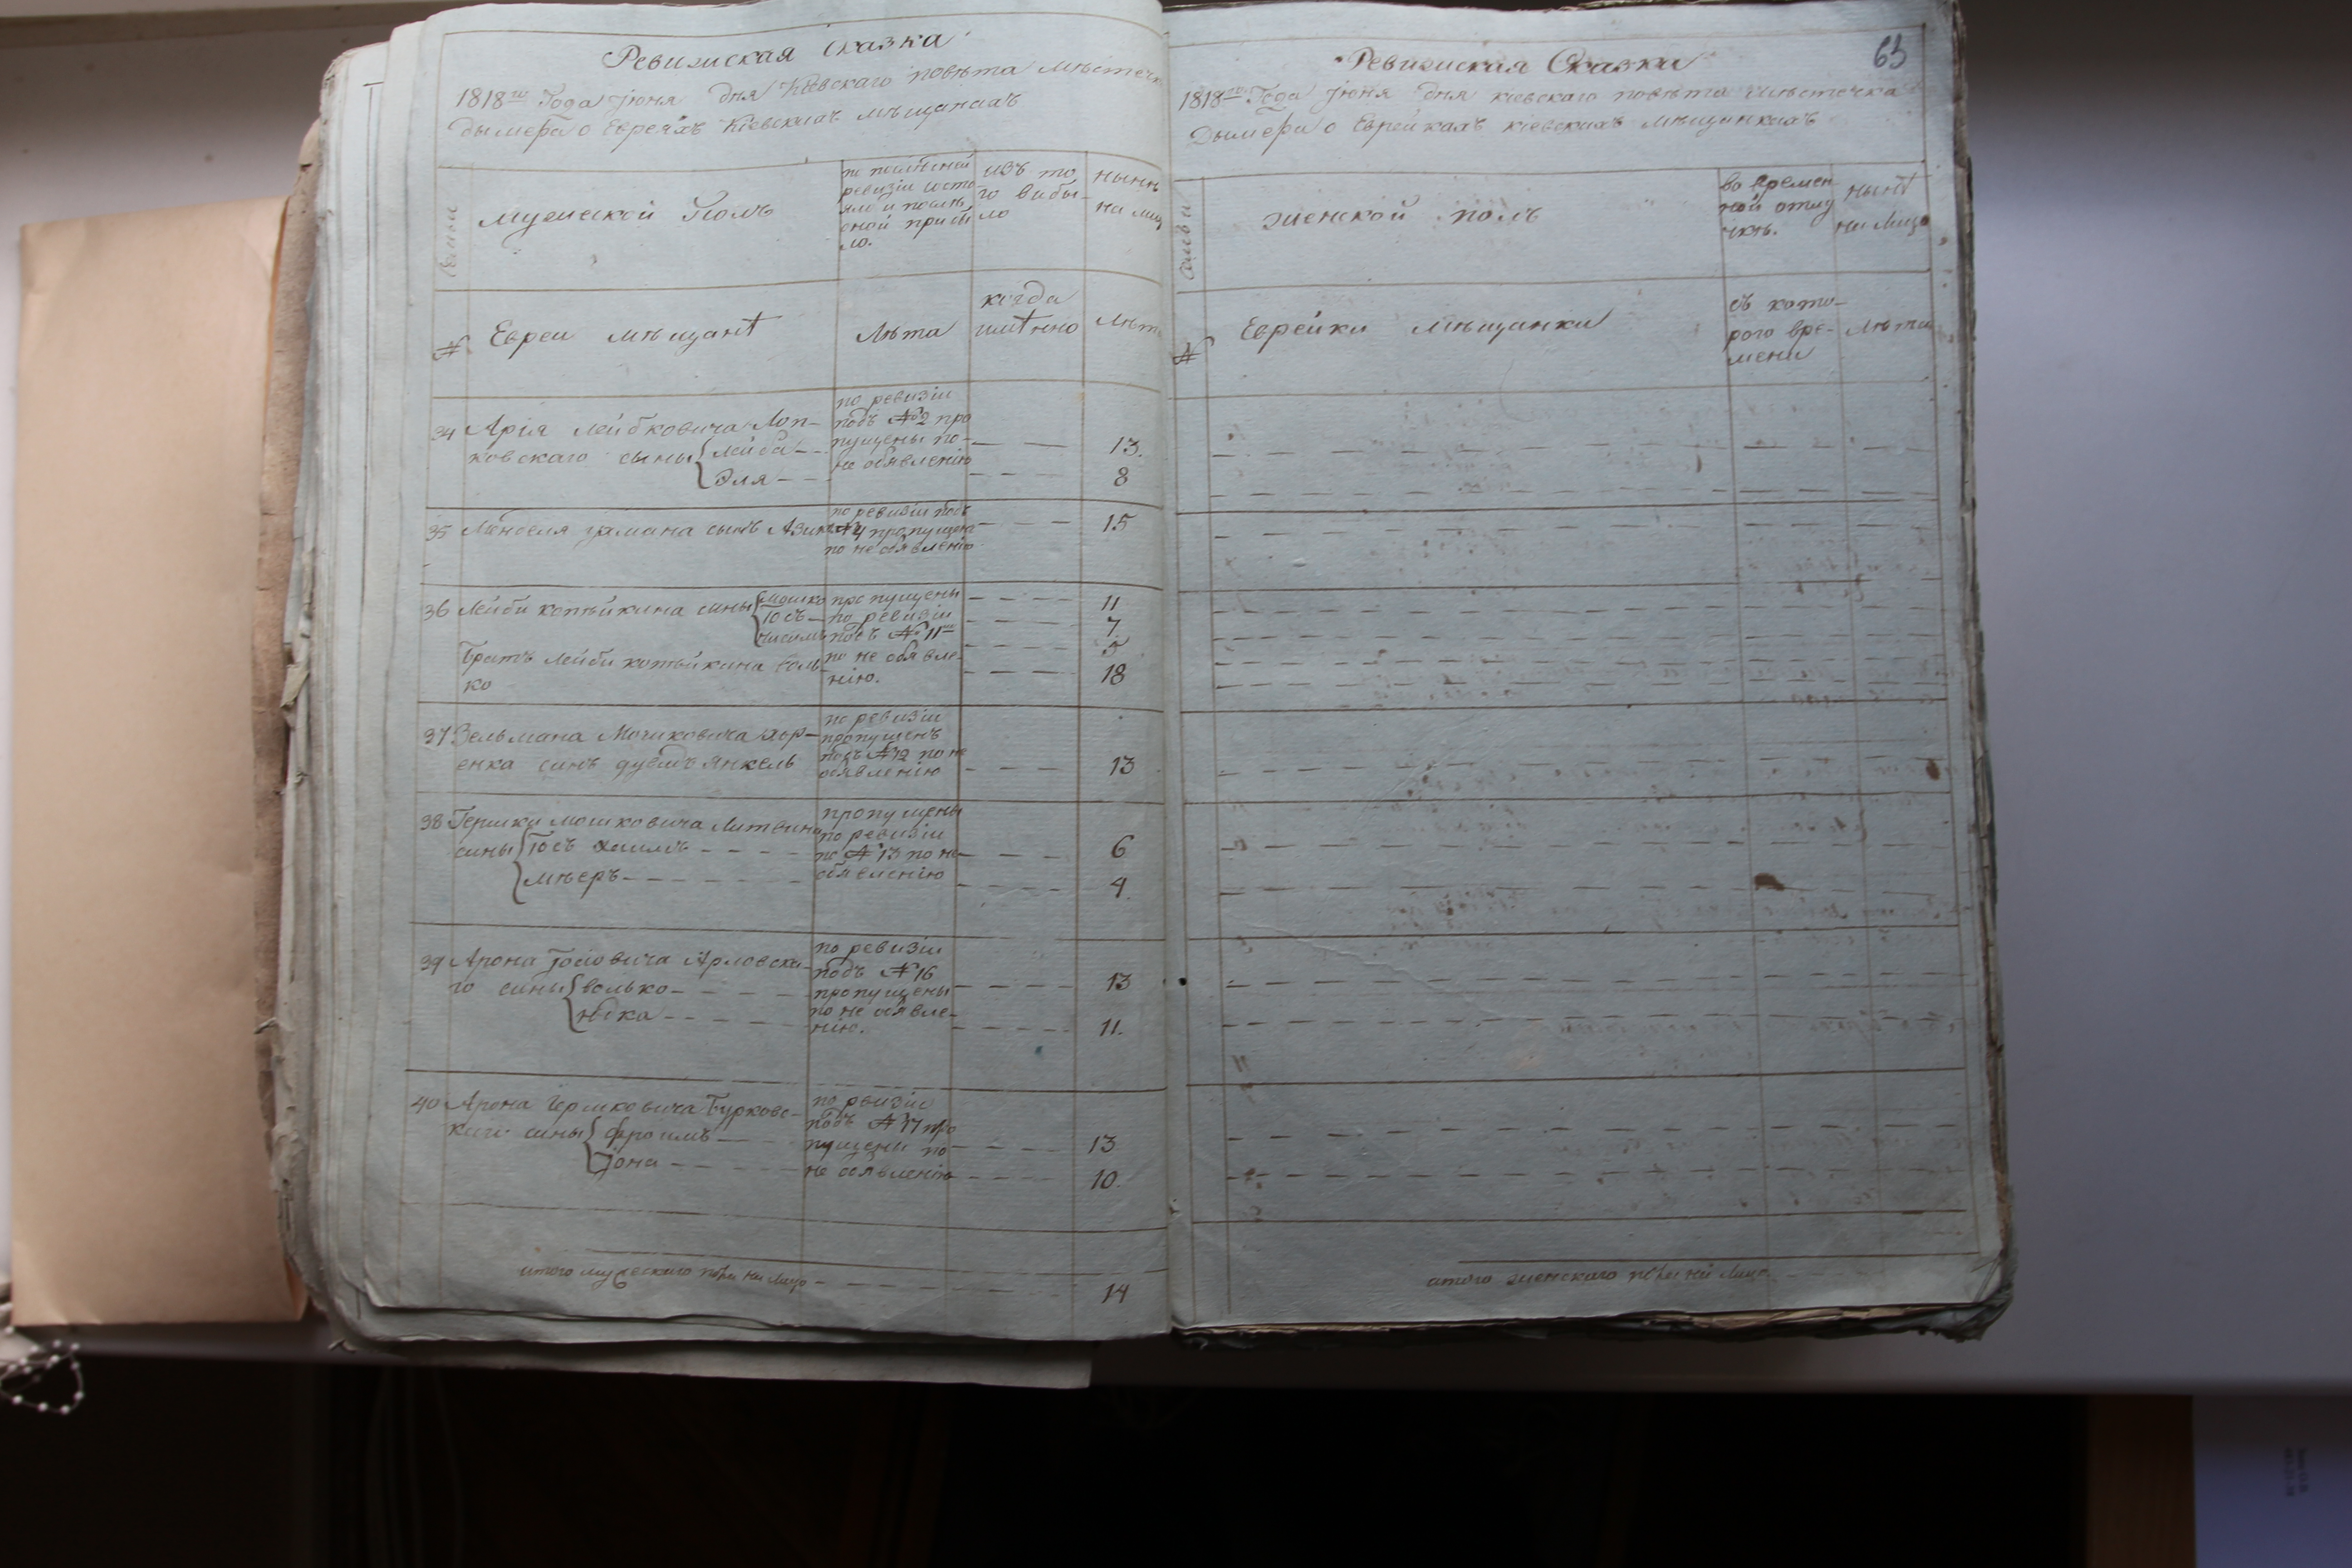 Ревизиская Сказка
1818го Года Јюня дня Кіевскаго повѣта мѣстечка
дымера о Евреяхъ Кіевскихъ мѣщанахъ
Семьи
мужеской Полъ
по послѣдней
ревизіи состо
яло и послѣ
оной прибы
ло.
изъ то
го выбы
ло
нынѣ
на лицо
№
Евреи мѣщанѣ
Лѣта
когда
имѣнно
Лѣта
34 Арія Лейбковича Лоп-
ковскаго сыны Лейба
Эля
по ревизіи
подъ №2 про
пущены по
не объявленію
13.
8
35 Менделя сынъ
по ревизіи подъ
№4 пропущенъ
по не объявленію
15
36 Лейби копѣйкина сины Мошко
Іосъ
пропущены
по ревизіи
подъ №11мъ
по не объявле-
нію.
11
7
5
Братъ Лейби копѣйкина Воль-
ко
18
37 Зельмана Мошковича хор-
енка синъ дувидъ Янкель
по ревизіи
пропущенъ
подъ №12 по не
объявленію
13
38 Гершки мошковича Литвина
сины Іосъ хаимъ
мѣеръ
пропущены
по ревизіи
по №13 по не
объявленію
6
4.
39 Арона Іосіовича Арловска-
го сины волько
юдка
по ревизіи
подъ №16
пропущены
по не объявле-
нію.
13
11.
40 Арона Гершковича Бурковс-
каго сины фроимъ
Јона
по рвизіи
подъ №17 про
пущени по
не объявленію
13
10.
итого мужескаго пола на лицо
14
63
Ревизиская Сказка
1818го Года Јюня дня кіевскаго повѣта мѣстечка
Дымера о Еврейкахъ кіевскихъ мѣщанкахъ
Семьи
женской полъ
во времен
ной отлу
чкѣ.
нынѣ
на лицо
№
Еврейки мѣщанки
съ кото-
рого вре-
мени
Лѣта
итого женскаго пола на лицо